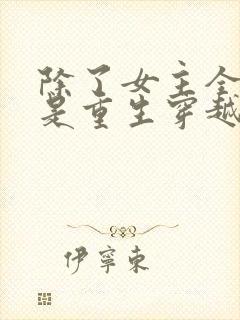 除了女主全
是重生穿越
伊寧東